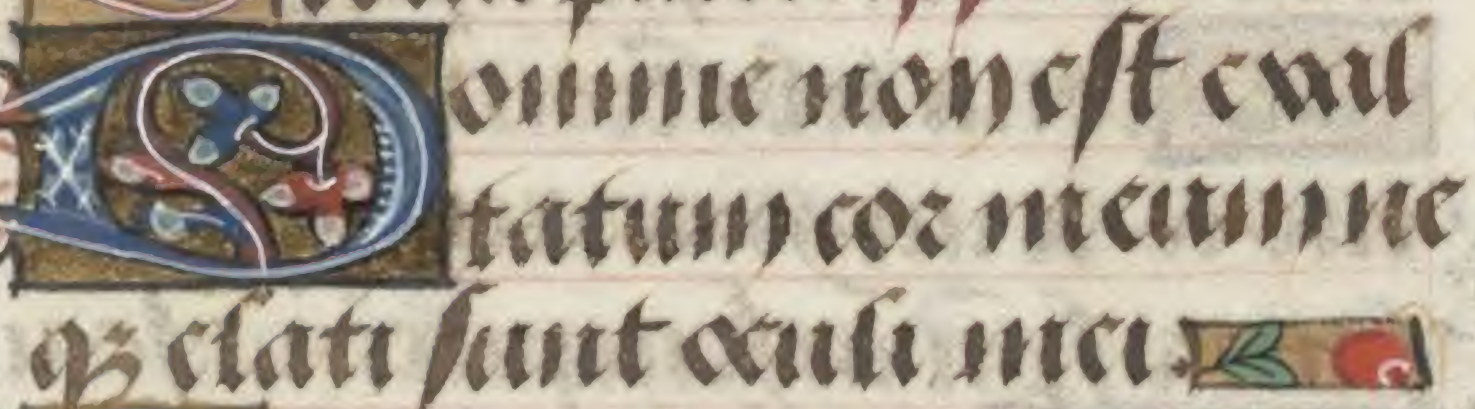 Domine non est exal
tatum cor meum ne
qȝ elati sunt oculi mei.